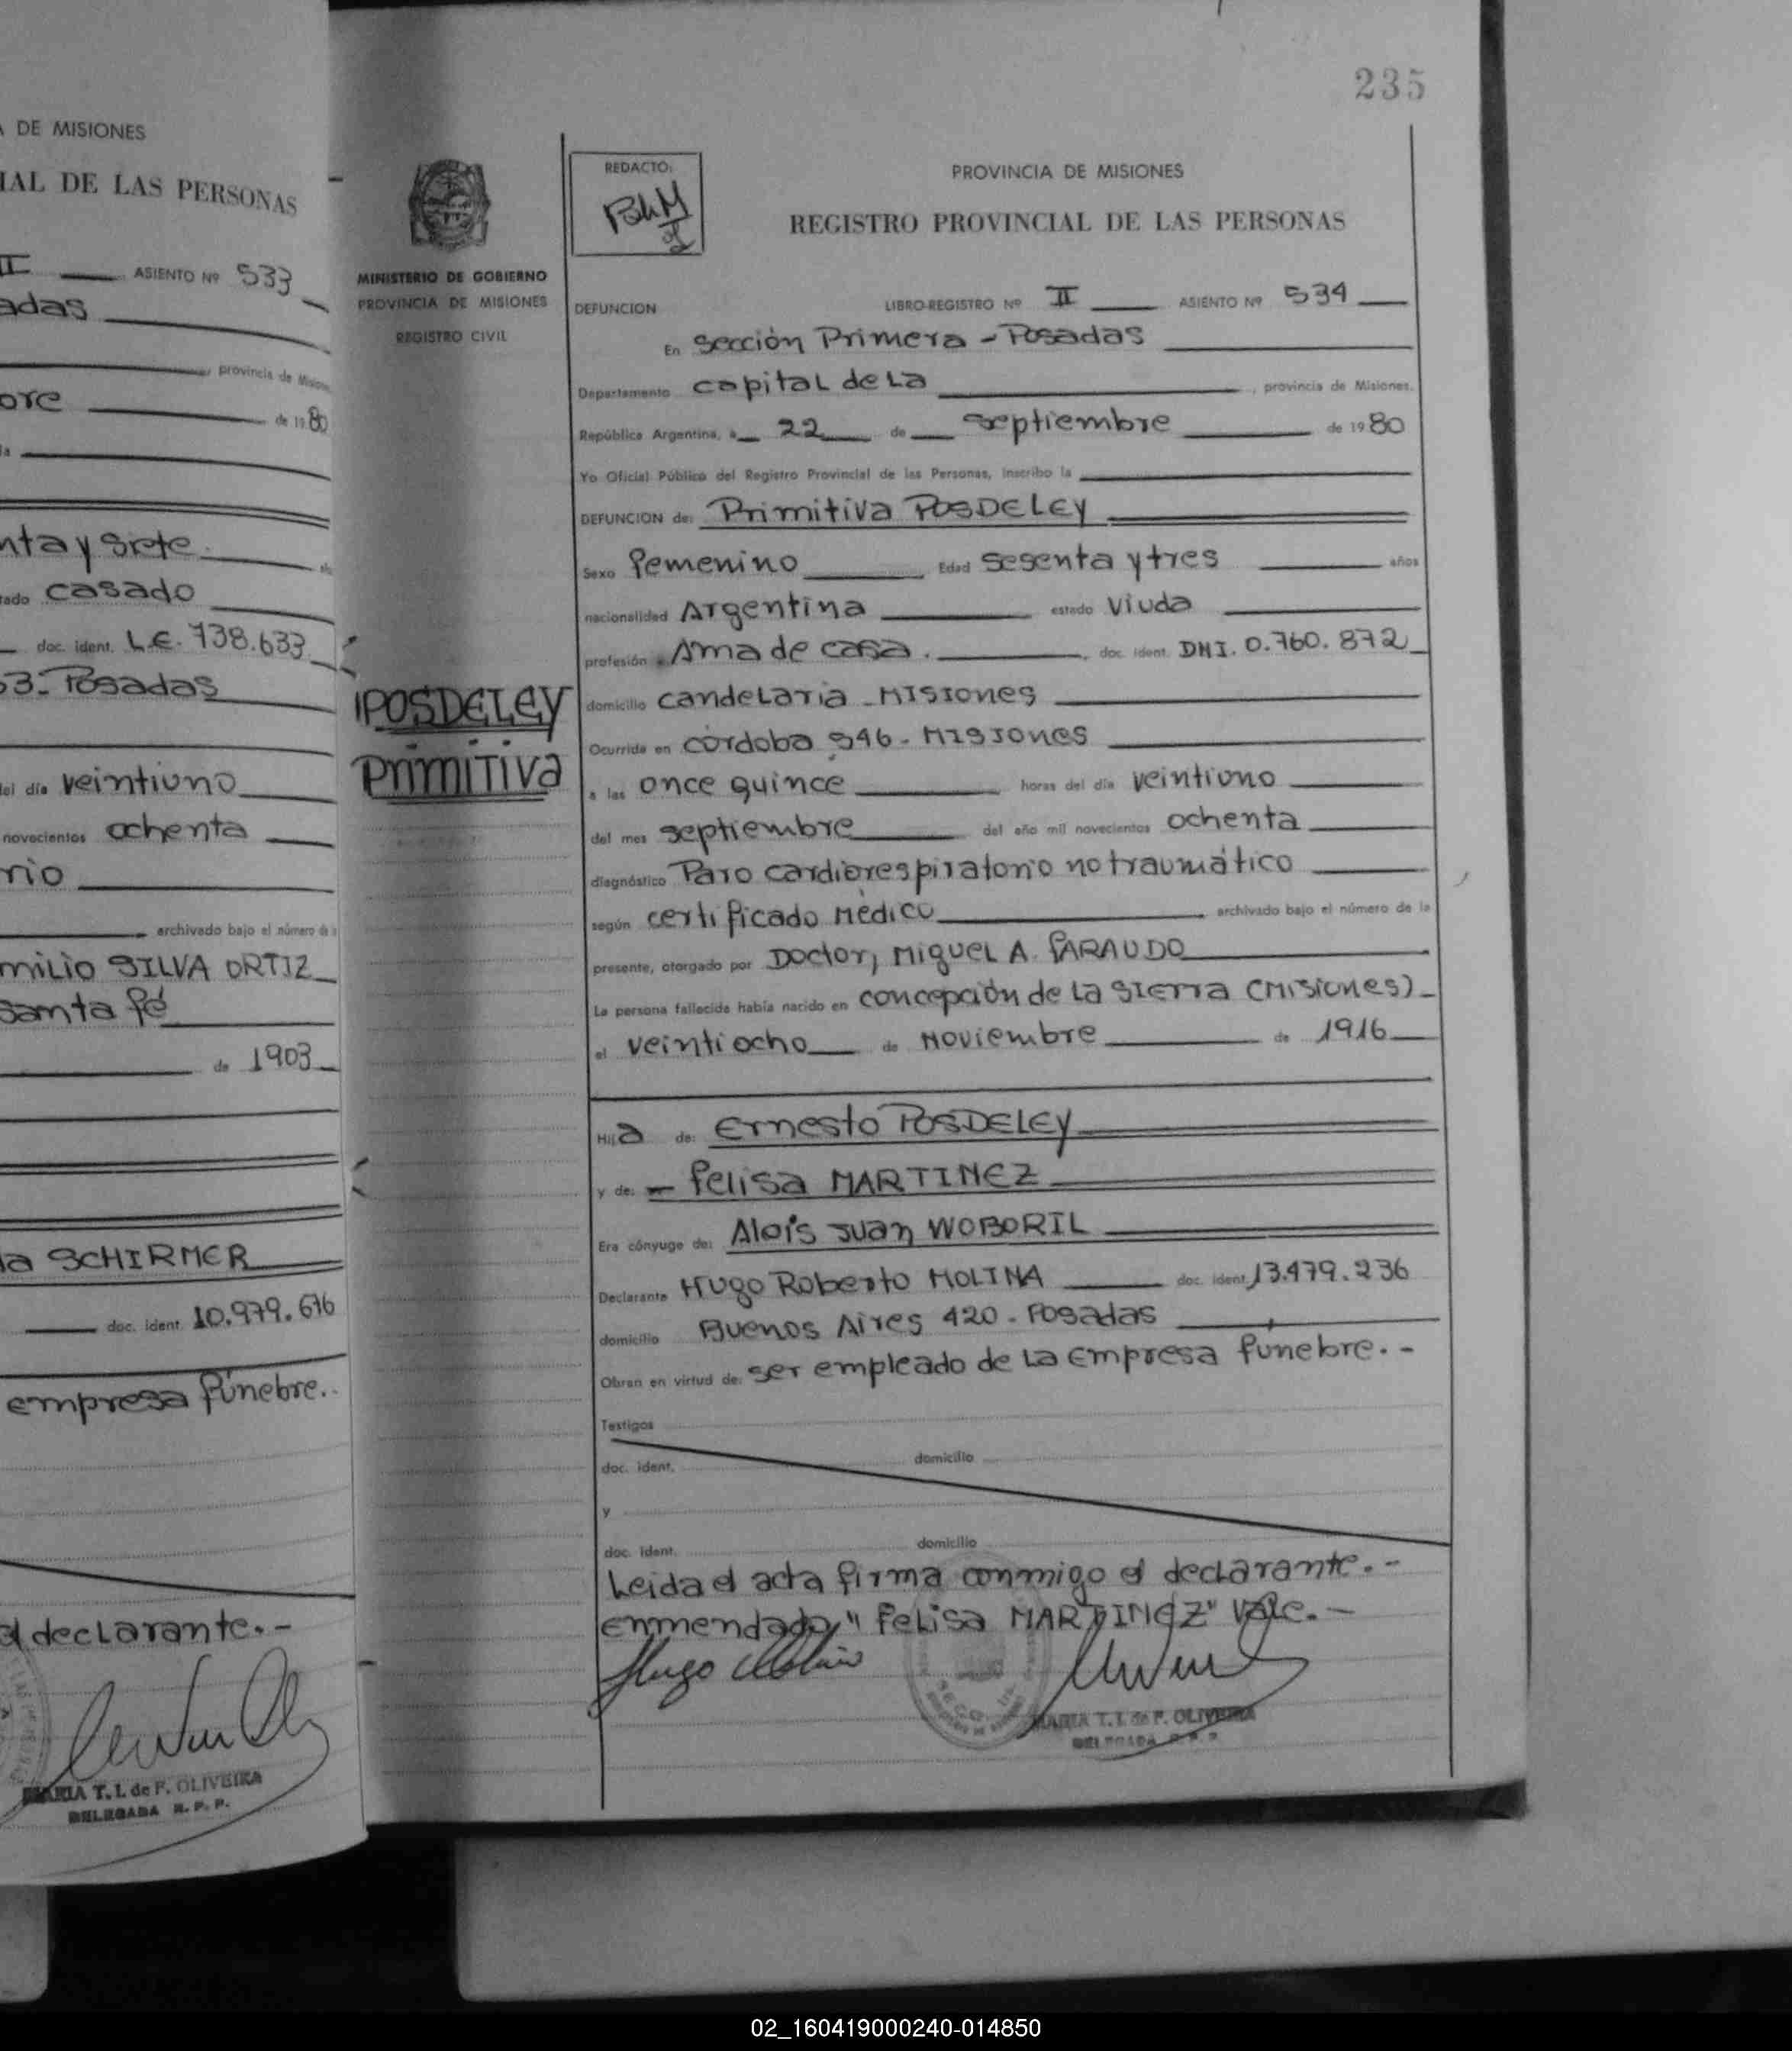 DE MISIONES
IAL DE LAS PERSONAS
II ASIENTO Nº 533
adas
provincia de Misiones
bre de 1980
la
nta y siete
tado casado
doc. ident. L.E. 738.633
53- Posadas
del día veintiuno
novecientos ochenta
rio
archivado bajo el número de
milio SILVA ORTIZ
Santa fé
de 1903
la SCHIRMER
doc. ident. 10.979.676
empresa fúnebre.-
el declarante.-
MARIA T. I. de F. OLIVEIRA
DELEGADA R. P. P.
MINISTERIO DE GOBIERNO
PROVINCIA DE MISIONES
REGISTRO CIVIL
POSDELEY
PRIMITIVA
235
REDACTO:
PROVINCIA DE MISIONES
REGISTRO PROVINCIAL DE LAS PERSONAS
DEFUNCION LIBRO-REGISTRO Nº II ASIENTO Nº 534
En Sección Primera - Posadas
Departamento capital de La, provincia de Misiones.
República Argentina, a 22 de septiembre de 1980
Yo Oficial Público del Registro Provincial de las Personas, inscribo la
DEFUNCION de: Primitiva POSDELEY
Sexo femenino Edad sesenta y tres años
nacionalidad Argentina estado Viuda
profesión Ama de casa. doc. ident. DNI. 0.760.872
domicilio candelaria - Misiones
Ocurrida en córdoba 546 - Misiones
a las once quince horas del día veintiuno
del mes septiembre del año mil novecientos ochenta
diagnóstico Paro cardiorespiratorio no traumático
según certificado Médico archivado bajo el número de la
presente, otorgado por Doctor, Miguel A. FARAUDO
La persona fallecida había nacido en concepción de la sierra (Misiones)-
el veintiocho de Noviembre de 1916
Hija de: Ernesto POSDELEY
y de: - felisa MARTINEZ
Era cónyuge de: Alois Juan WOBORIL
Declarante Hugo Roberto MOLINA doc. ident. 13.479.236
domicilio Buenos Aires 420 - Posadas
Obran en virtud de: ser empleado de la empresa fúnebre.-
Testigos
doc. ident. domicilio
y
doc. ident. domicilio
Leida el acta firma conmigo el declarante.-
enmendado "felisa MARTINEZ" Vale.-
Hugo Molina
MARIA T. I. de F. OLIVEIRA
DELEGADA R. P. P.
02_160419000240-014850